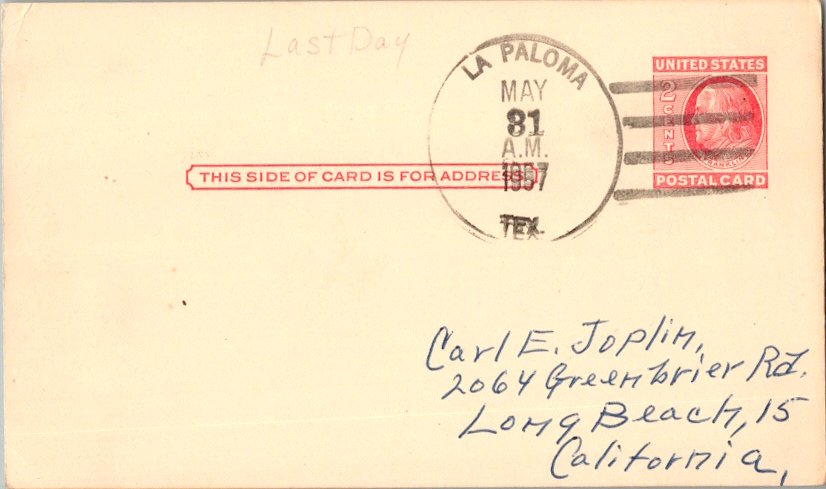 Last Day
LA PALOMA
MAY
31
A.M.
1957
TEX.
UNITED STATES
2
CENTS
FRANKLIN
POSTAL CARD
THIS SIDE OF CARD IS FOR ADDRESS
Carl E. Joplin,
2064 Greenbrier Rd.
Long Beach, 15
California,